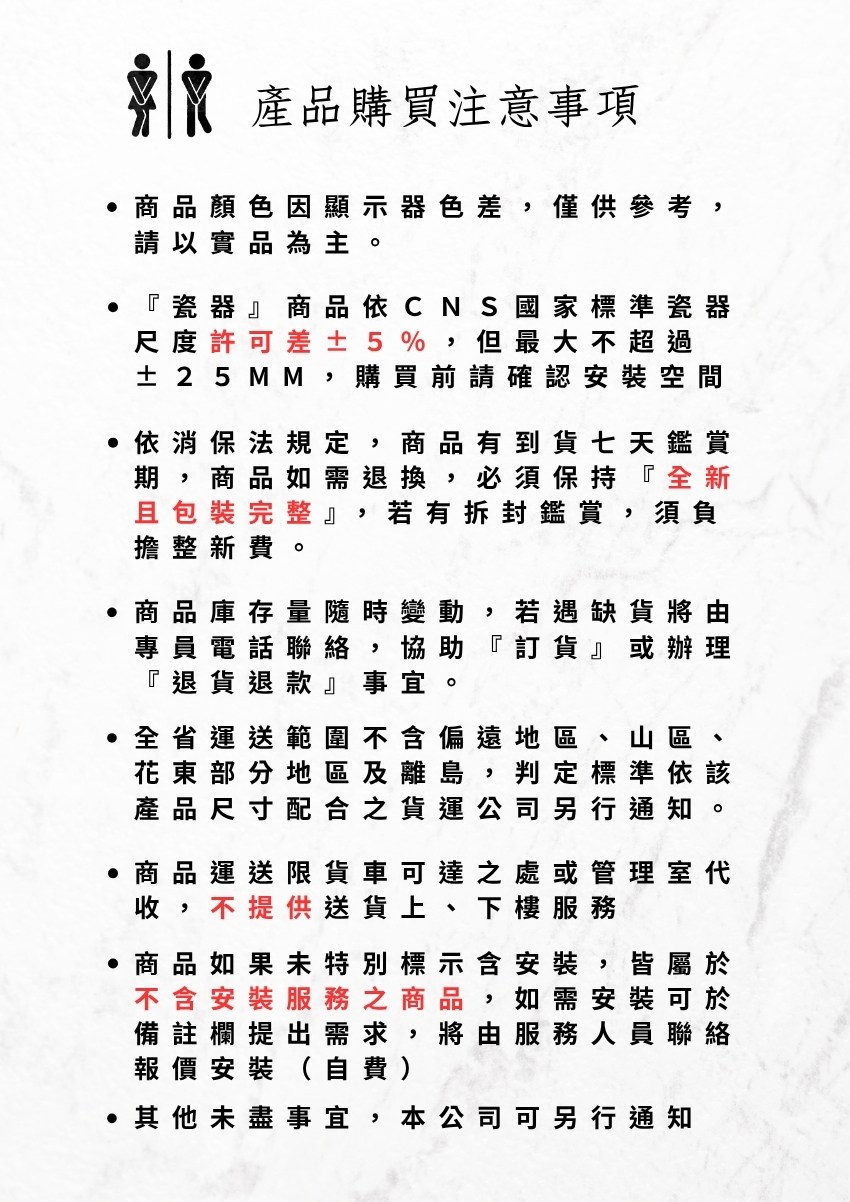 產品購買注意事項
• 商品顏色因顯示器色差，僅供參考，
請以實品為主。
• 『瓷器』商品依ＣＮＳ國家標準瓷器
尺度許可差±５％，但最大不超過
±２５ＭＭ，購買前請確認安裝空間
• 依消保法規定，商品有到貨七天鑑賞
期，商品如需退換，必須保持『全新
且包裝完整』，若有拆封鑑賞，須負
擔整新費。
• 商品庫存量隨時變動，若遇缺貨將由
專員電話聯絡，協助『訂貨』或辦理
『退貨退款』事宜。
• 全省運送範圍不含偏遠地區、山區、
花東部分地區及離島，判定標準依該
產品尺寸配合之貨運公司另行通知。
• 商品運送限貨車可達之處或管理室代
收，不提供送貨上、下樓服務
• 商品如果未特別標示含安裝，皆屬於
不含安裝服務之商品，如需安裝可於
備註欄提出需求，將由服務人員聯絡
報價安裝（自費）
• 其他未盡事宜，本公司可另行通知